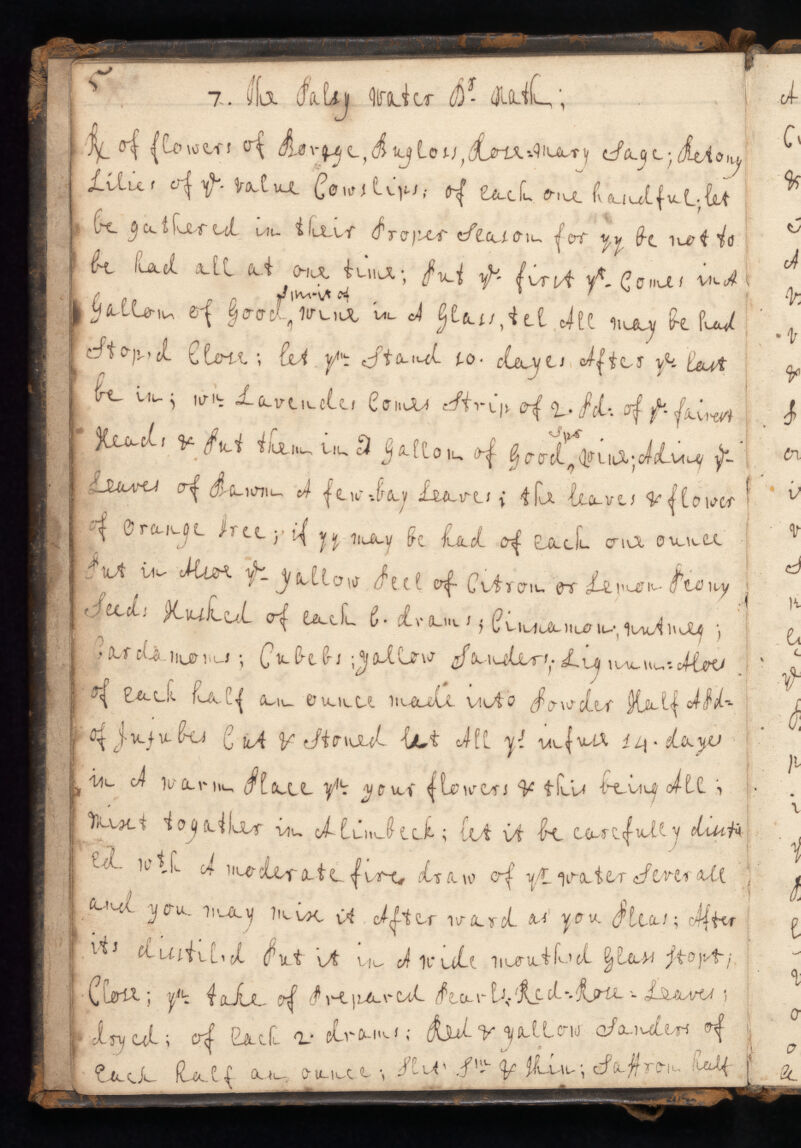 5
7. The Palsy Water Dr. Math;
℞ of flowers of Borage, Bugloss, Rose=mary Sage; Betony
Lilies of ye. value Cowslips; of each one handful; let
be gathered in their Proper Season for yy be not to
be had all at one time; Put ye. first yt. Comes in A
Spirit of
Gallon of Good ‸ wine in A Glass, tel All may be had
Stop,d Close; let ym Stand 10. dayes After ye last
be in; wn. Lavender Comes Strip of 2. Pd: of ye. fairest
Sps
Heads & Put them in A Gallon of Good ‸ wine; Ading ye-
Leaves of Bawm A few=bay Leaves; the leaves & flower
of Orange tree; if yy may be had of each one ounce
Put in Alsoe ye- yallow Peel of Citron or Lemon Peony
Seeds Husked of each 6. drams; Cinnamon, nutmeg;
Cardamoms; Cubebs; yallow Sanders; Lignum=Aloes
of each half an ounce made into Powder Half A Pd=
of Jujubes Cut & Stoned let All ys infuse 14. dayes
in A warm Place yn your flowers & this being All;
mixt togather in Alimbeck; let it be carefully distil
ed wth A moderate fire draw of yr water Severall
and you may mix it After ward as you Pleas; After
its distil,d Put it in A wide mouth,d Glass Stopt;
Close; yn take of Prepared Pearls, Red=Rose=Leaves;
dryed; of Each 2. drams; Red & yallow Sanders of
Each half an ounce; Slit Sm & thin; Saffron half